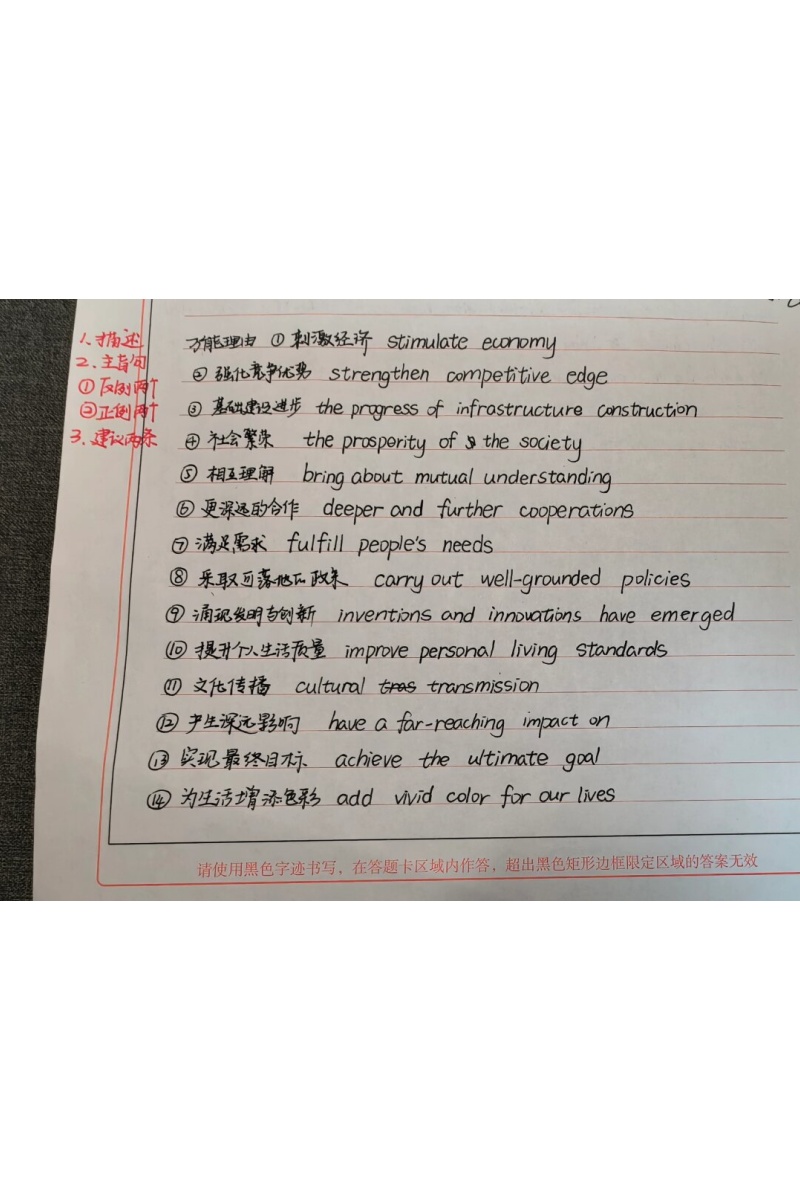 1、描述
2、主旨句
①反例两个
②正例两个
3、建议两条
万能理由 ①刺激经济 stimulate economy
②强化竞争优势 strengthen competitive edge
③基础建设进步 the progress of infrastructure construction
④社会繁荣 the prosperity of the society
⑤相互理解 bring about mutual understanding
⑥更深远的合作 deeper and further cooperations
⑦满足需求 fulfill people's needs
⑧采取可落地的政策 carry out well-grounded policies
⑨涌现发明与创新 inventions and innovations have emerged
⑩提升个人生活质量 improve personal living standards
⑪文化传播 cultural tras transmission
⑫产生深远影响 have a far-reaching impact on
⑬实现最终目标 achieve the ultimate goal
⑭为生活增添色彩 add vivid color for our lives
请使用黑色字迹书写，在答题卡区域内作答，超出黑色矩形边框限定区域的答案无效